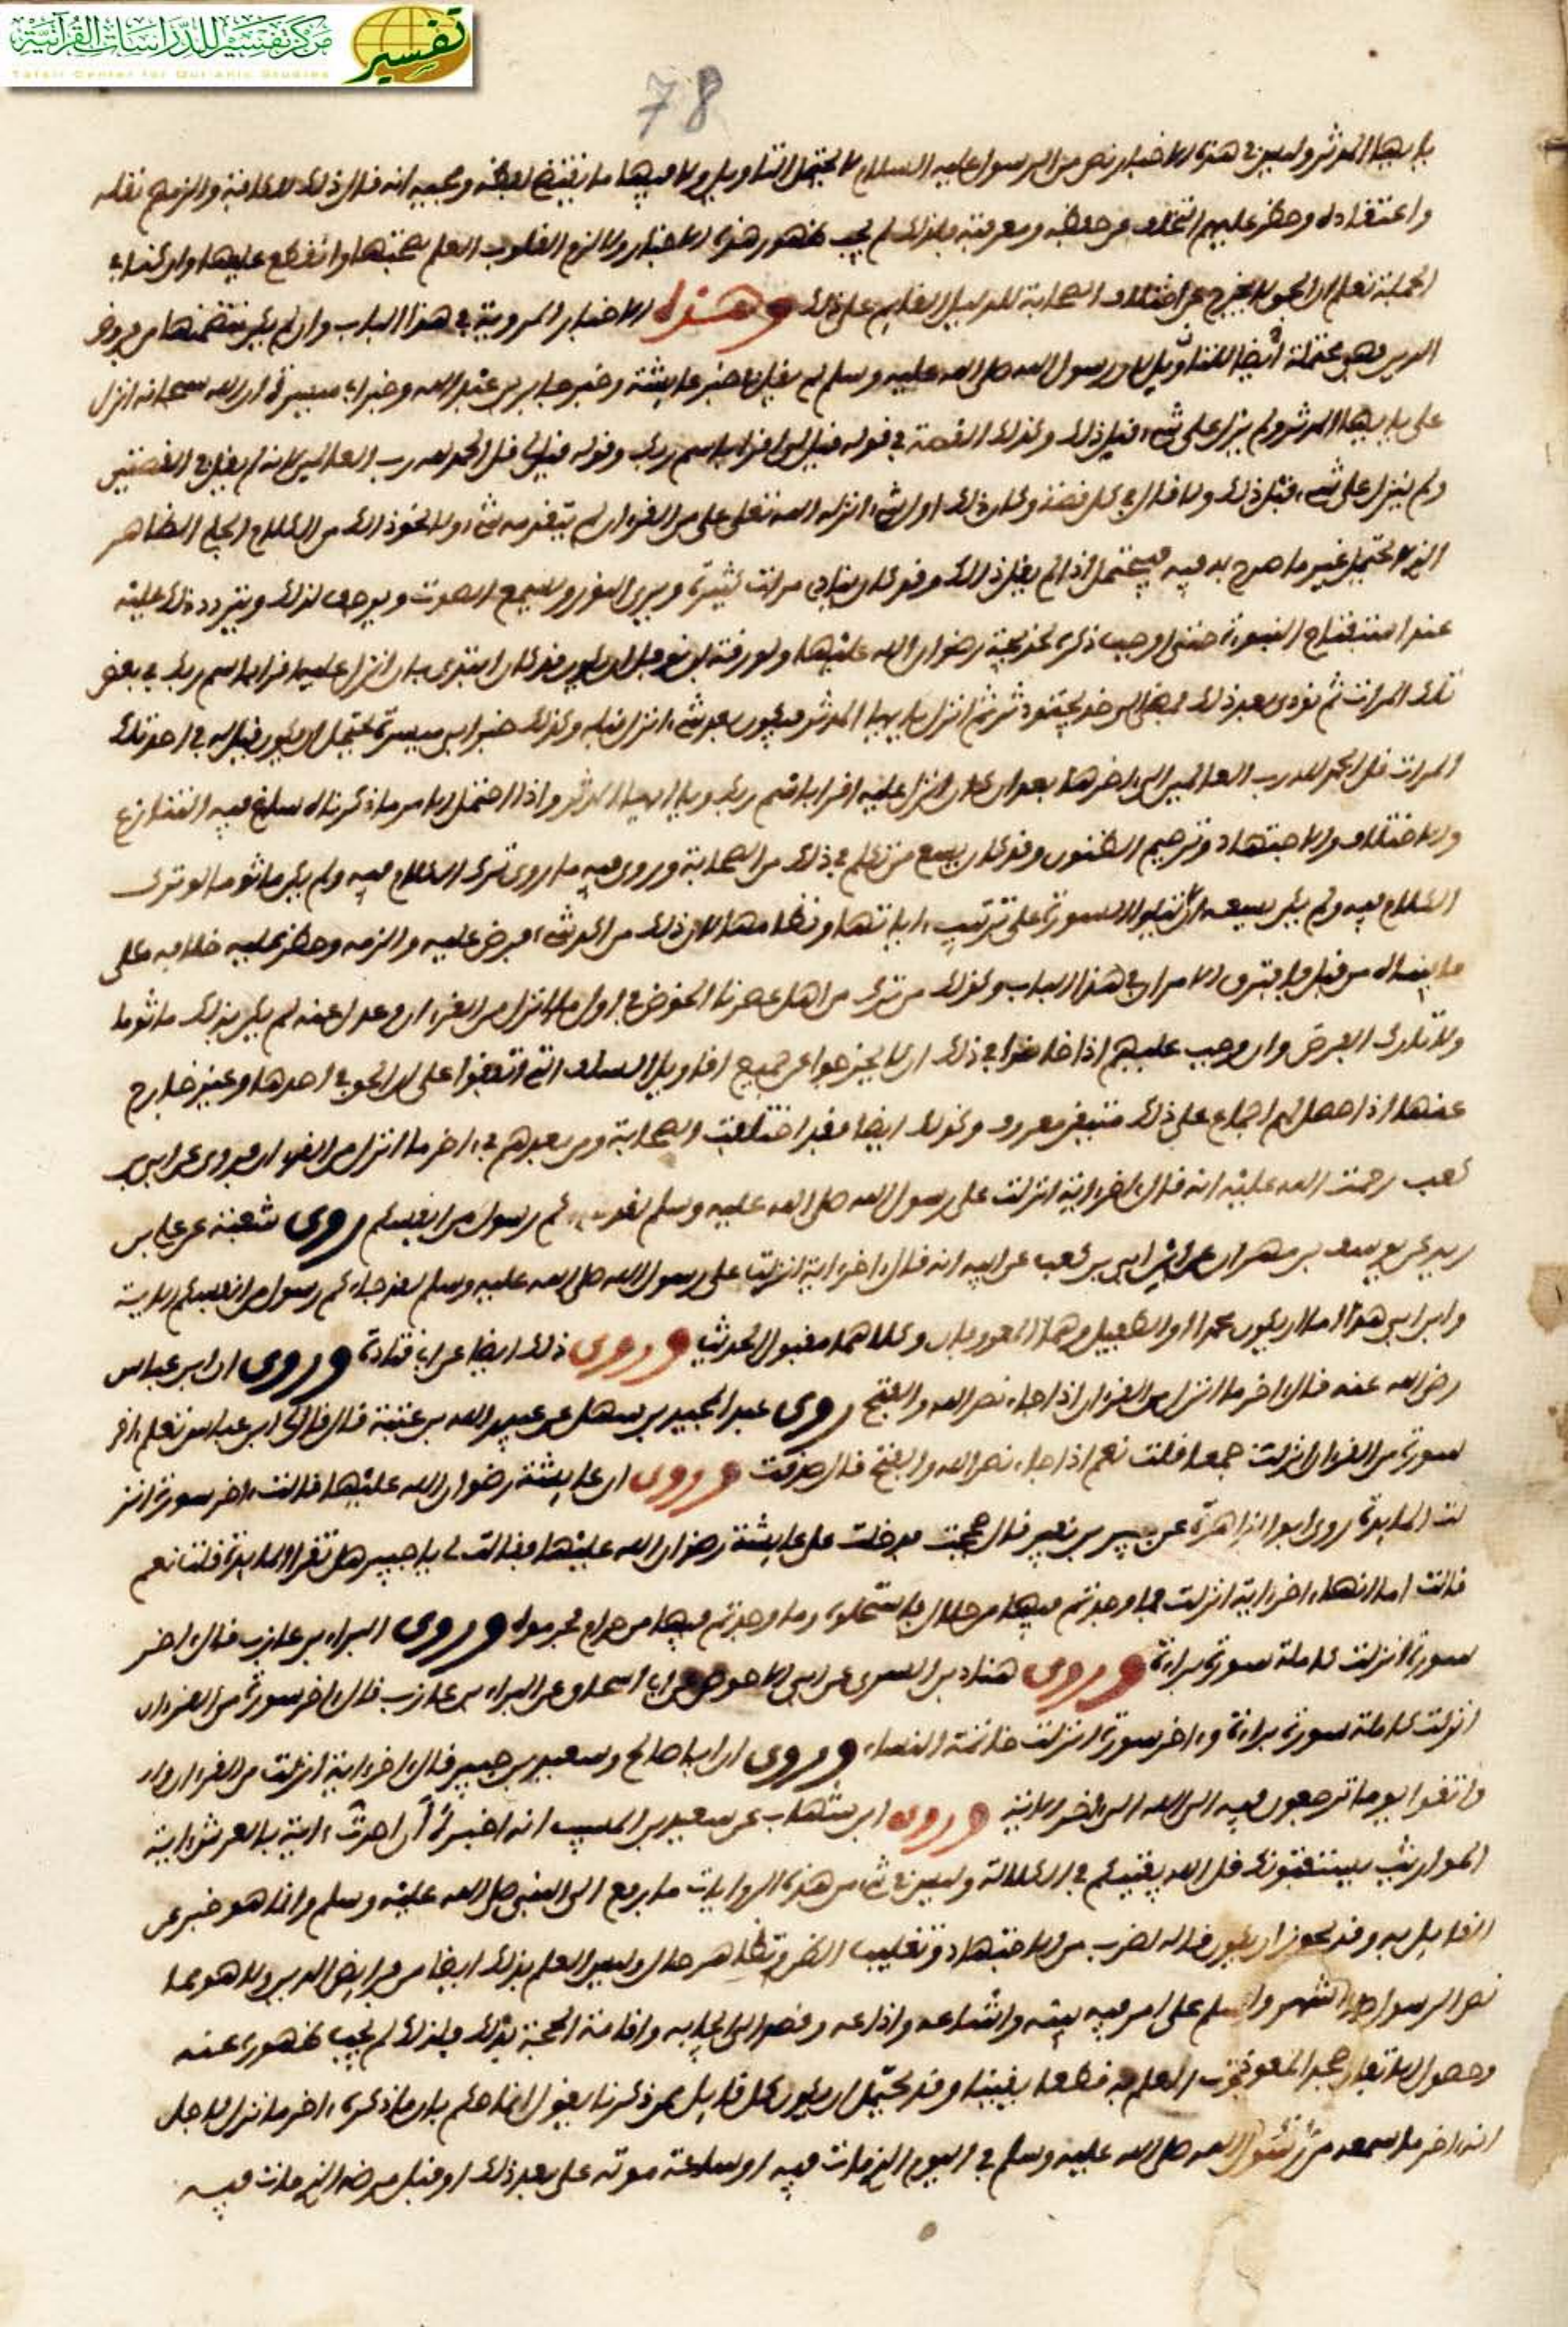 مركز تفسير للدراسات القرآنية
Tafsir Center for Qur'anic Studies
تفسير
78
يا يها المدثر وليس في هذه الاخبار نص من الرسول عليه السلام لا يحتمل التاويل ولا فيها ما يقتضي لفظه انه قال ذلك للكافة والزمهم نقله
واعتقاده وحظر عليهم التخلف عن حفظه ومعرفته فلذلك لم يجب ظهور هذه الاخبار ولا لزم القلوب العلم بصحتها والقطع عليها وان كنا في
الجملة نعلم ان الحق لا يخرج عن اختلاف الصحابة للدليل القايم على ذلك وهذه الاخبار المروية في هذا الباب وان لم يكن تتضمنها من فروض
الدين فهي محتملة ايضا للتاويل لان رسول الله صلى الله عليه وسلم لم يقل في خبر عايشة وخبر جابر بن عبد الله وخبر ابي ميسرة ان الله سبحانه انزل
علي يا يها المدثر ولم ينزل علي شيء قبل ذلك وكذلك القصة في قوله قيل لي اقرا باسم ربك وقوله قيل لي قل الحمد لله رب العالمين لانه لم يقل في القصتين
ولم ينزل علي شيء قبل ذلك ولا قال في كل قصة وكان ذلك اول شيء انزله الله تعلى علي من القرءان لم يتقدمه شيء ولا نحو ذلك من الكلام الجلي الظاهر
الذي لا يحتمل غير ما صرح به فيه فيحتمل اذا لم يقل ذلك وقد كان ينادى مرات كثيرة ويرى النور ويسمع الصوت ويرجف لذلك ويتردد ذلك عليه
عند استفتاح النبوة حتى اوجب ذكره لخديجة رضوان الله عليها ولورقة بن نوفل ان يكون قد كان ابتدي بان انزل عليه اقرا باسم ربك في بعض
تلك المرات ثم نودي بعد ذلك فمضى الى خديجة فدثر ثم انزل يا يها المدثر فيكون بعد شيء انزل قبله وكذلك خبر ابي ميسرة يحتمل ان يكون قيل له في احد تلك
المرات قل الحمد لله رب العالمين الى اخرها بعد ان كان انزل عليه اقرا باسم ربك ويا ايها المدثر واذا احتمل الامر ما ذكرناه ساغ فيه التنازع
والاختلاف والاجتهاد وترجيم الظنون وقد كان يسع من تكلم في ذلك من الصحابة وروى فيه ما روى ترك الكلام فيه ولم يكن ماثوما لو ترك
الكلام فيه ولم يكن يسعه الا تلو السورة على ترتيب ءاياتها ونظامها لان ذلك من اكد شيء فرض عليه والزمه وحظر عليه خلافه على
ما بيناه من قبل فافترق الامران في هذا الباب وكذلك من ترك من اهل عصرنا الخوض في اول ما انزل من القرءان وعدل عنه لم يكن بذلك ماثوما
ولا تارك الفرض وان وجب عليهم اذا خاضوا في ذلك ان لا يخرجوا عن جميع اقاويل السلف التي اتفقوا على ان الحق في احدها وغير خارج
عنها اذا حصل لهم اجماع على ذلك متيقن معروف وكذلك ايضا فقد اختلفت الصحابة ومن بعدهم في ءاخر ما انزل من القرءان فروي عن ابي بن
كعب رحمت الله عليه انه قال ءاخر ءاية انزلت على رسول الله صلى الله عليه وسلم لقد جاءكم رسول من انفسكم روى شعبة عن علي بن
زيد عن يوسف بن مهران عن ابن ابي بن كعب عن ابيه انه قال ءاخر ءاية انزلت على رسول الله صلى الله عليه وسلم لقد جاءكم رسول من انفسكم الاية
وابن ابي هذا اما ان يكون محمدا او الطفيل وهما المعروفان وكلاهما مقبول الحديث وروى ذلك ايضا عن قتادة وروى ان ابن عباس
رضي الله عنه قال ءاخر ما انزل من القرءان اذا جاء نصر الله والفتح روى عبد المجيد بن سهل عن عبيد الله بن عتبة قال قال لي ابن عباس تعلم ءاخر
سورة من القرءان انزلت جميعا قلت نعم اذا جاء نصر الله والفتح قال صدقت وروى ان عايشة رضوان الله عليها قالت ءاخر سورة انز
لت المايدة روى ابو الزاهرية عن جبير بن نفير قال حججت فدخلت على عايشة رضوان الله عليها فقالت لي يا جبير هل تقرا المايدة قلت نعم
قالت اما انها ءاخر ءاية انزلت فما وجدتم فيها من حلال فاستحلوه وما وجدتم فيها من حرام فحرموه وروى البراء بن عازب قال ءاخر
سورة انزلت كاملة سورة براءة وروى هناد بن السري عن ابي الاحوص عن ابي اسحاق عن البراء بن عازب قال ءاخر سورة من القرءان
انزلت كاملة سورة براءة وءاخر سورة انزلت خاتمة النساء وروى ان ابا صالح وسعيد بن جبير قالا ءاخر ءاية انزلت من القرءان
واتقوا يوما ترجعون فيه الى الله الى ءاخر الاية وروى ابن شهاب عن سعيد بن المسيب انه اخبره ان احدث ءاية بالعرش ءاية
المواريث يستفتونك قل الله يفتيكم في الكلالة وليس في شيء من هذه الروايات ما يرفع الى النبي صلى الله عليه وسلم وانما هو خبر عن
القايل به وقد يجوز ان يكون قاله لضرب من الاجتهاد وتغليب الظن وبظاهر حال وليس العلم بذلك ايضا من فرايض الدين ولا هو مما
نص الرسول عليه السلم على امر فيه بينه واشاعه واذاعه وقصد الى ايجابه واقامة الحجة بذلك فلذلك لم يجب ظهوره عنه
وحصول الاتفاق عليه العلم به قطعا يقينا وقد يحتمل ان يكون كل قايل ممن ذكرنا يقول انما حكم بان ما ذكره ءاخر ما نزل لاجل
انه ءاخر ما سمعه من رسول الله صلى الله عليه وسلم في اليوم الذي مات فيه او ساعة موته على بعد ذلك او قبل مرضه الذي مات فيه